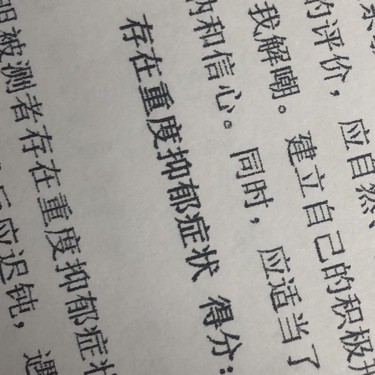 的评价，应自然、
我解嘲。建立自己的积极
纳和信心。同时，应适当了
存在重度抑郁症状 得分：
明被测者存在重度抑郁症状
反应迟钝，遇